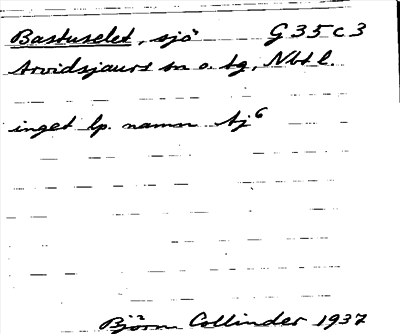 Bastuselet, sjö G 35 c 3
Arvidsjaurs sn o. tg, Nbtl.
inget lp. namn Aj6
Björn Collinder 1937